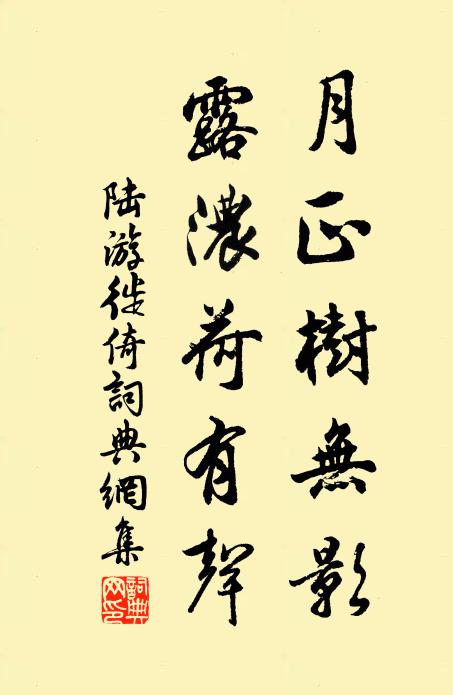 月正樹無影
露濃荷有聲
陆游徙倚詞典網集
詞典网印